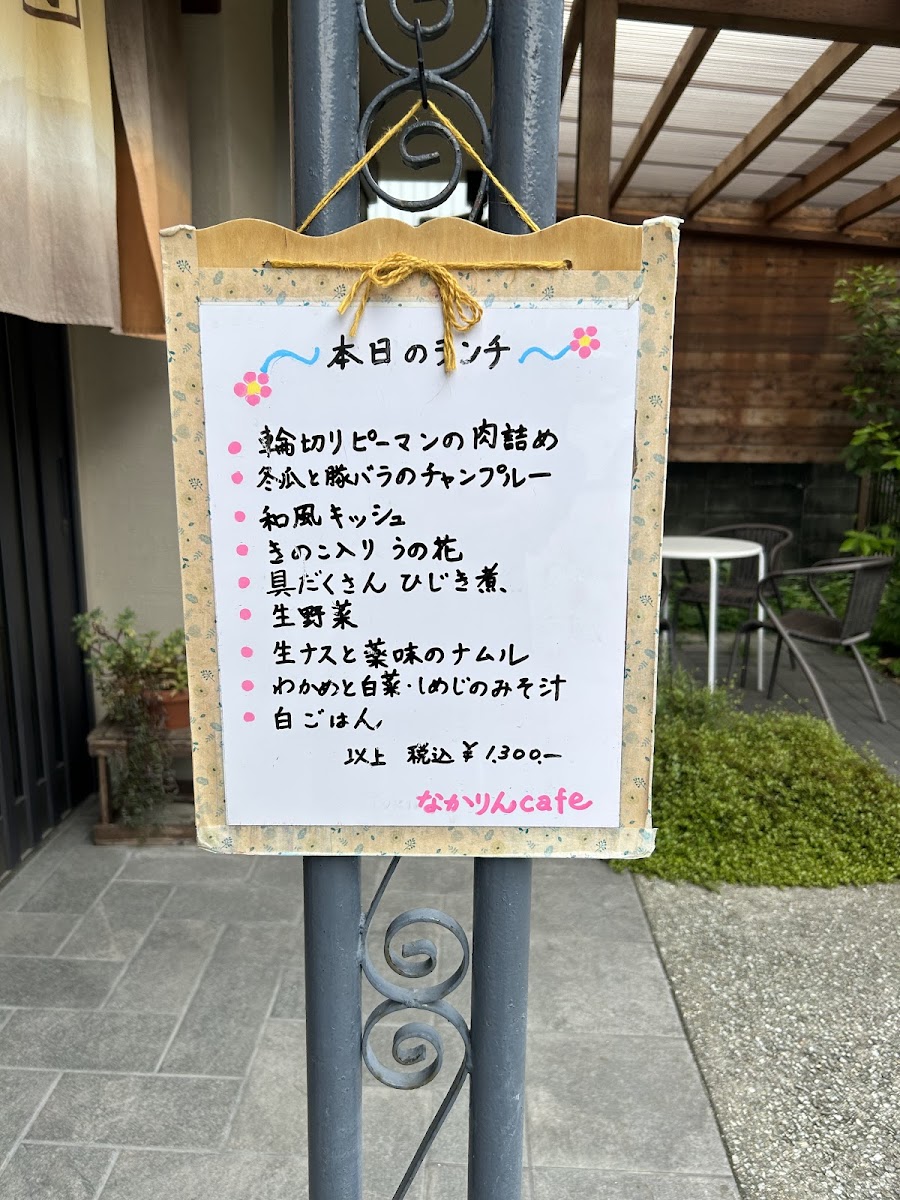 本日のランチ
輪切りピーマンの肉詰め
冬瓜と豚バラのチャンプルー
和風キッシュ
きのこ入りうの花
具だくさんひじき煮
生野菜
生ナスと薬味のナムル
わかめと白菜・しめじのみそ汁
白ごはん
以上 税込¥1.300.-
なかりんcafe